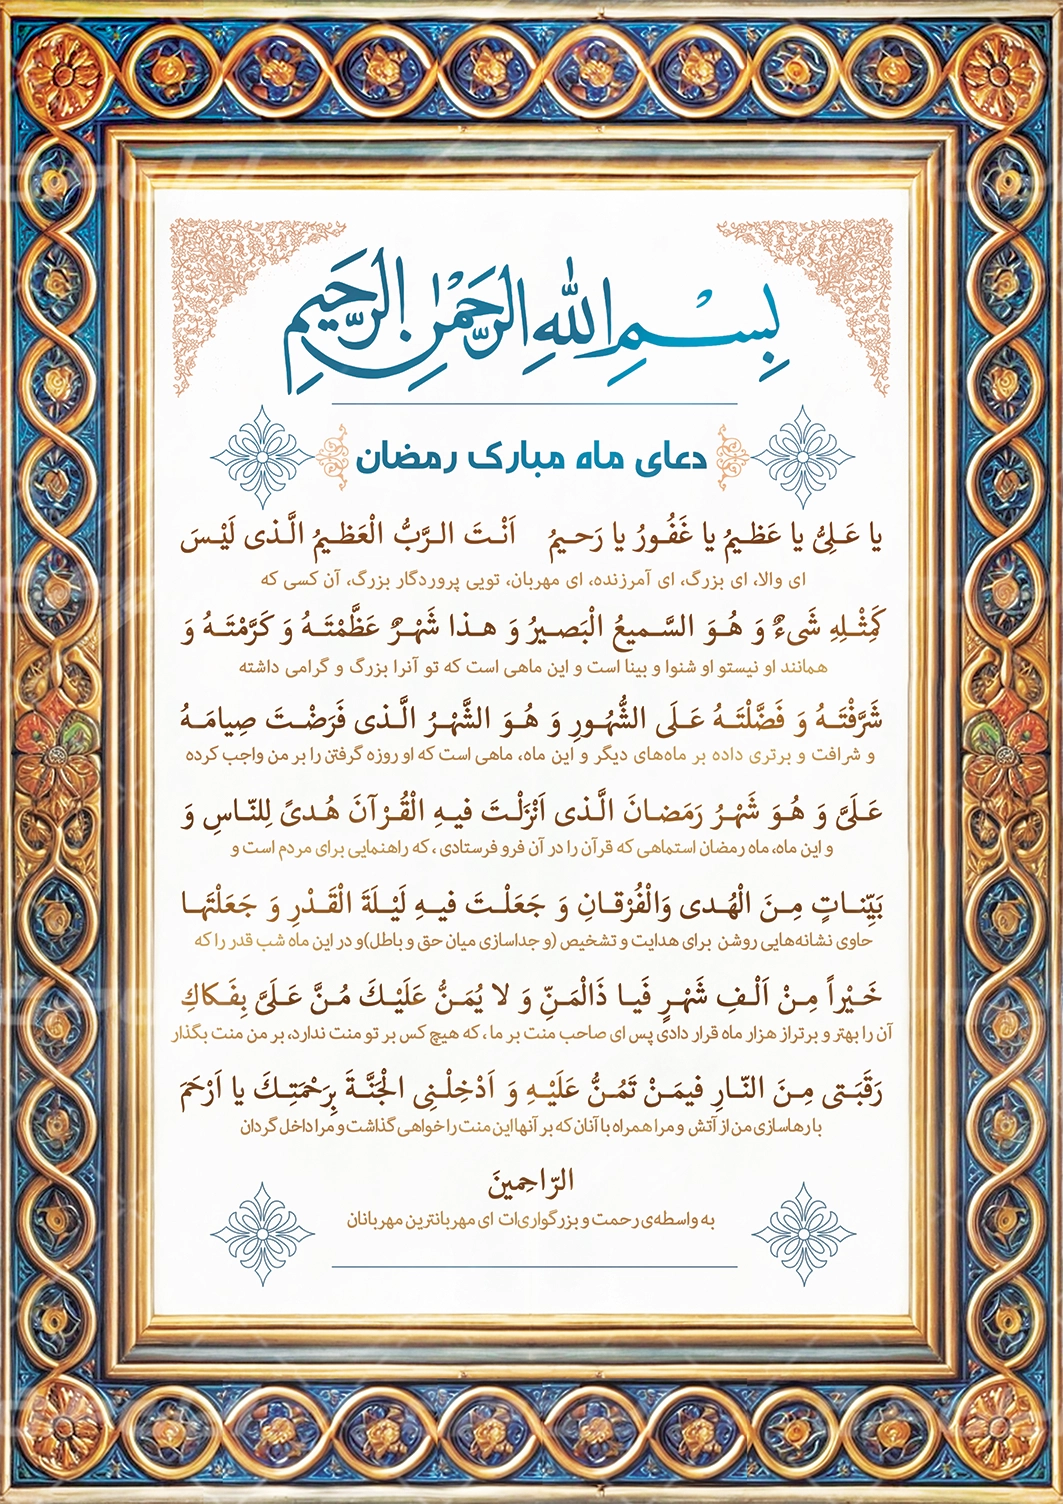 بِسْمِ اللهِ الرَّحْمٰنِ الرَّحيمِ
دعای ماه مبارک رمضان
يا عَـلِىُّ يا عَظـيمُ يا غَفُـورُ يا رَحـيمُ اَنْـتَ الـرَّبُّ الْعَظـيمُ الَّـذى لَيْـسَ
ای والا، ای بزرگ، ای آمرزنده، ای مهربان، تویی پروردگار بزرگ، آن کسی که
كَمِثْـلِهِ شَىءٌ وَ هُـوَ السَّـميعُ الْبَصـيرُ وَ هـذا شَهْـرٌ عَظَّمْتَـهُ وَ كَرَّمْتَـهُ وَ
همانند او نیستو او شنوا و بینا است و این ماهی است که تو آنرا بزرگ و گرامی داشته
شَرَّفْتَـهُ وَ فَضَّلْتَـهُ عَـلَى الشُّهُـورِ وَ هُـوَ الشَّهْـرُ الَّـذى فَرَضْـتَ صِيامَـهُ
و شرافت و برتری داده بر ماه‌های دیگر و این ماه، ماهی است که او روزه گرفتن را بر من واجب کرده
عَـلَىَّ وَ هُـوَ شَهْـرُ رَمَضـانَ الَّـذى اَنْزَلْـتَ فيـهِ الْقُـرْآنَ هُـدىً لِلنّـاسِ وَ
و این ماه، ماه رمضان استماهی که قرآن را در آن فرو فرستادی ، که راهنمایی برای مردم است و
بَيِّنـاتٍ مِـنَ الْهُـدى وَالْفُرْقـانِ وَ جَعَلْـتَ فيـهِ لَيْـلَةَ الْقَـدْرِ وَ جَعَلْتَهـا
حاوی نشانه‌هایی روشن برای هدایت و تشخیص (و جداسازی میان حق و باطل)و در این ماه شب قدر را که
خَـيْراً مِـنْ اَلْـفِ شَهْـرٍ فَيـا ذَالْمَـنِّ وَ لا يُمَـنُّ عَلَيْـكَ مُـنَّ عَـلَىَّ بِفَـكاكِ
آن را بهتر و برتراز هزار ماه قرار دادی پس ای صاحب منت بر ما ، که هیچ کس بر تو منت ندارد، بر من منت بگذار
رَقَبَـتى مِـنَ النّـارِ فيمَـنْ تَمُـنُّ عَلَيْـهِ وَ اَدْخِلْـنِى الْجَنَّـةَ بِرَحْمَتِـكَ يا اَرْحَمَ
با رهاسازی من از آتش و مرا همراه با آنان که بر آنها این منت را خواهی گذاشت و مرا داخل گردان
الرّاحِمينَ
به واسطه‌ی رحمت و بزرگواری‌ات ای مهربانترین مهربانان